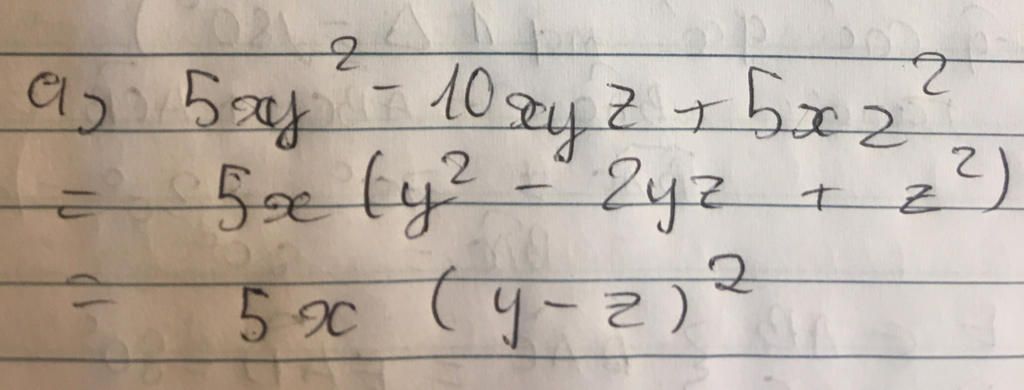 a) 5xy² - 10xyz + 5xz²
= 5x (y² - 2yz + z²)
= 5x (y - z)²